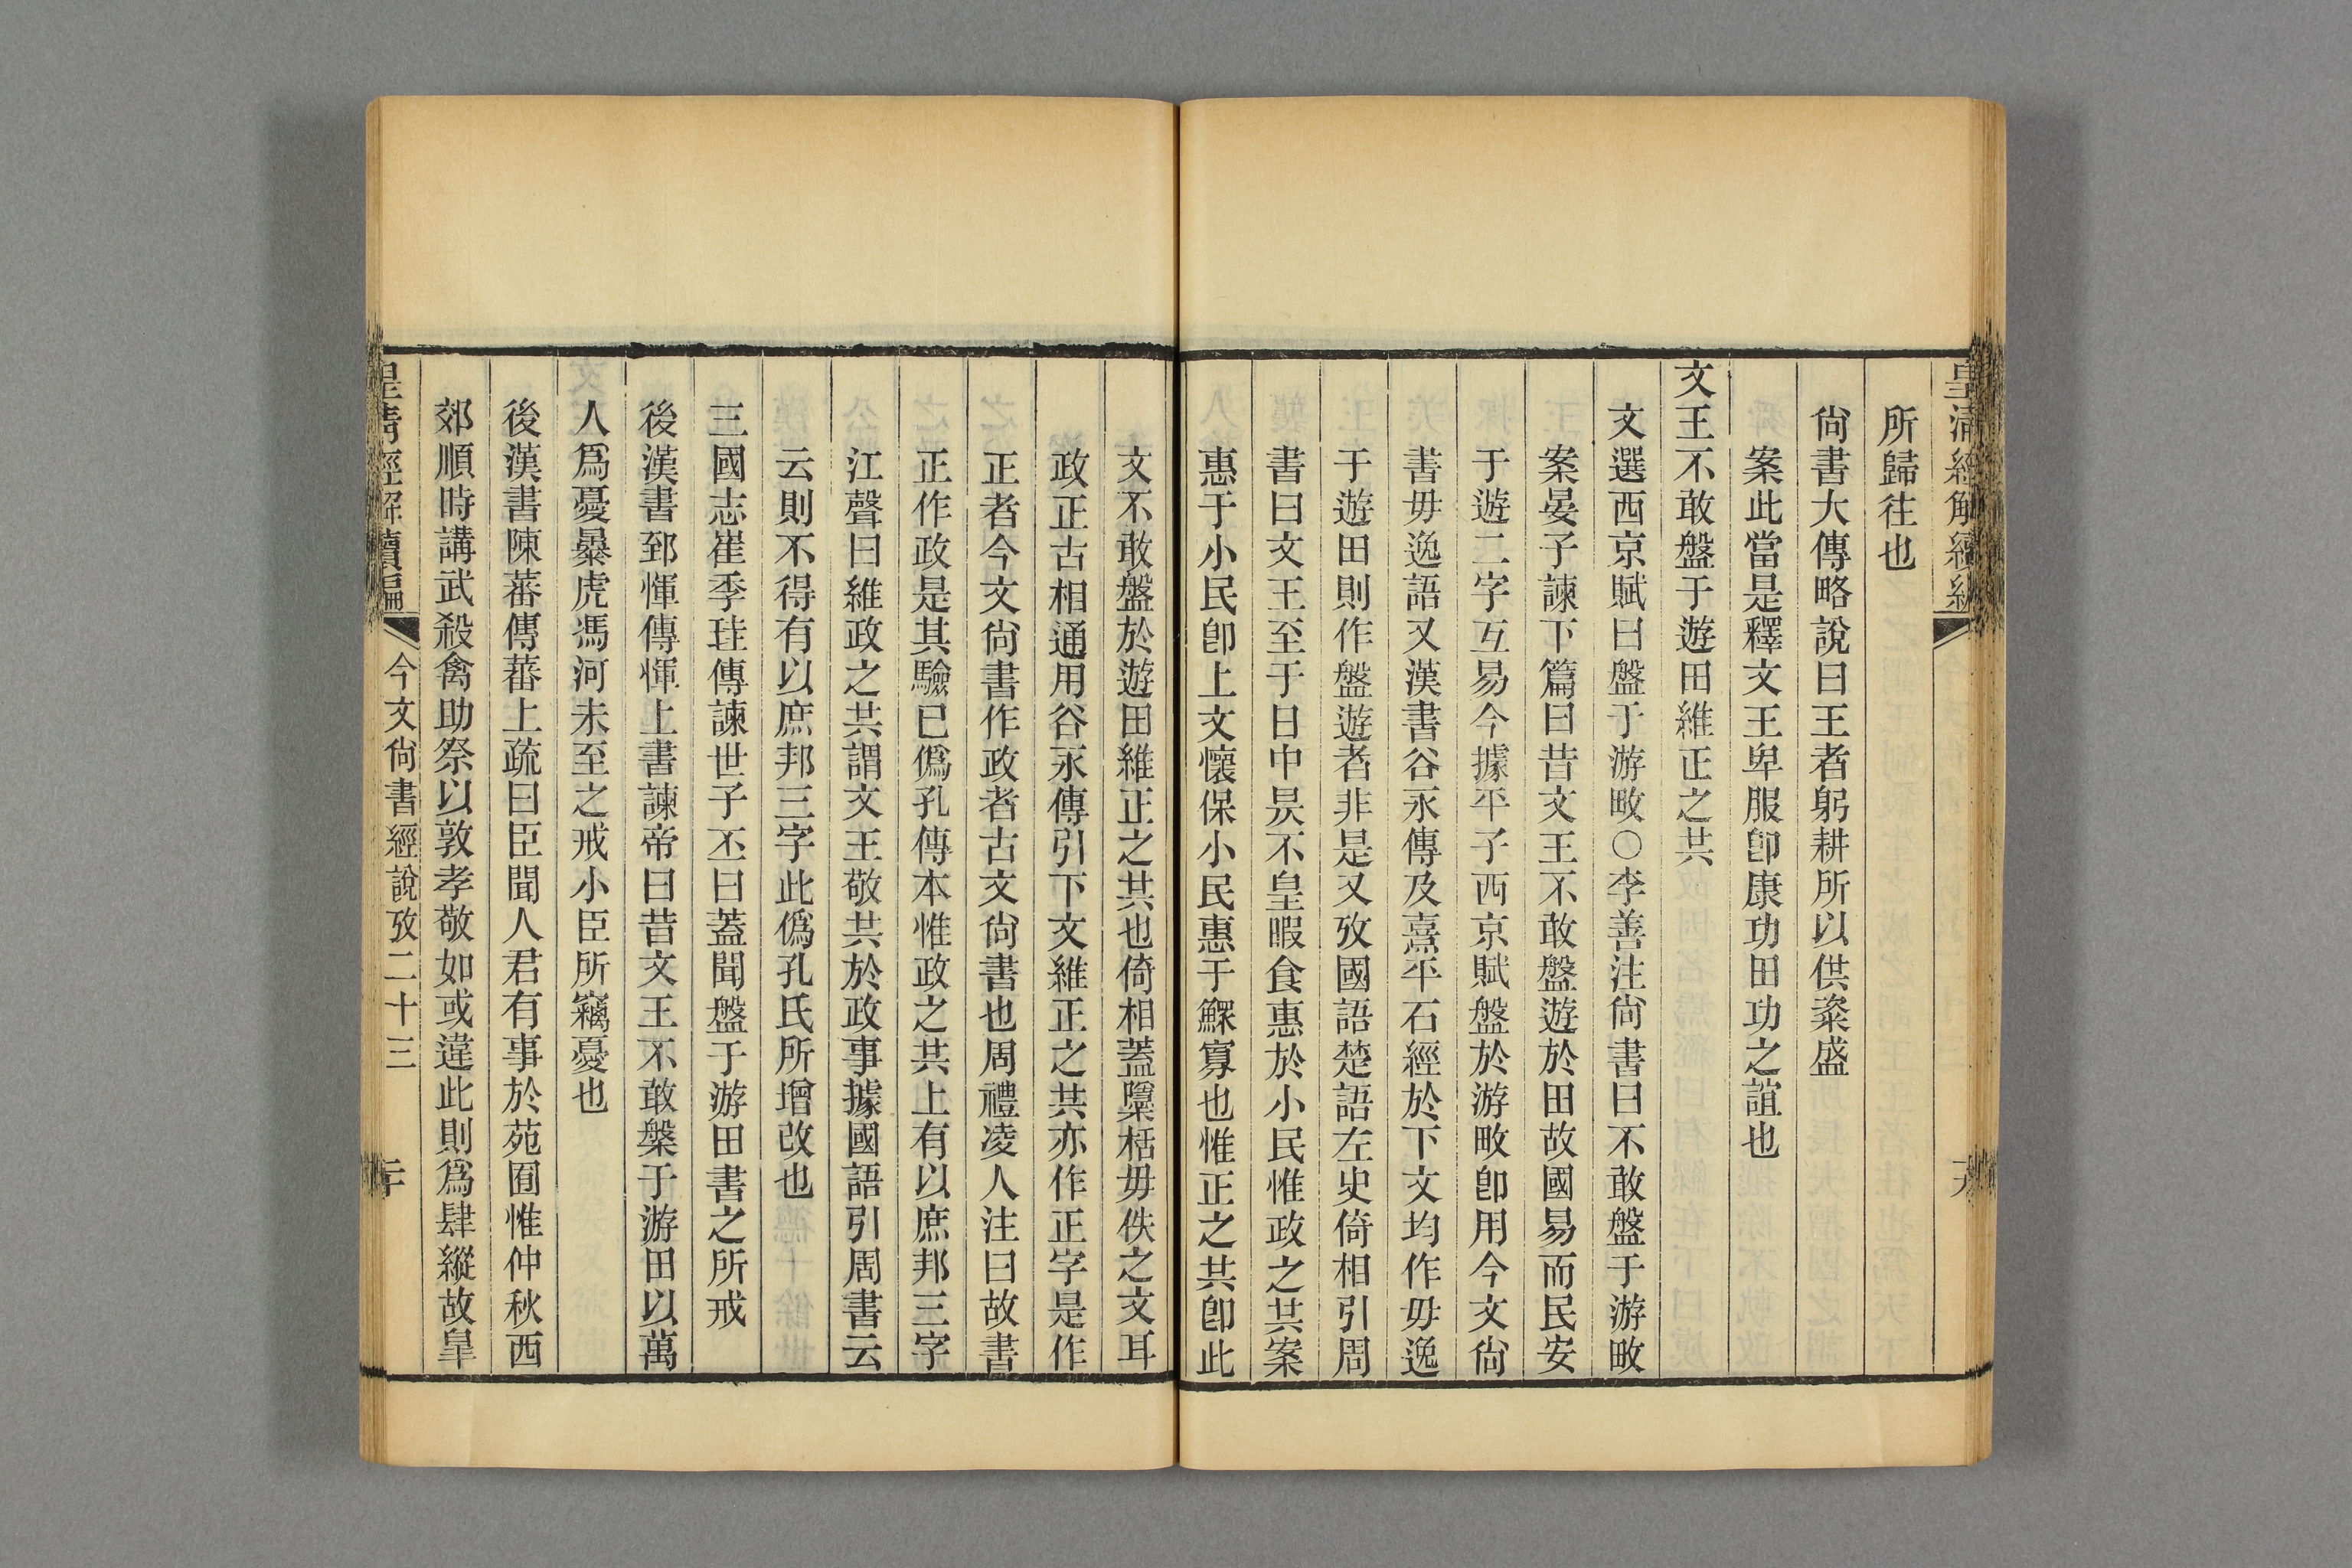 皇清經解續編
所歸往也
尙書大傳略說曰王者躬耕所以供粢盛
案此當是釋文王卑服卽康功田功之誼也
文王不敢盤于遊田維正之共
文選西京賦曰盤于游畋○李善注尙書曰不敢盤于游畋
案晏子諫下篇曰昔文王不敢盤遊於田故國易而民安
于遊二字互易今據平子西京賦盤於游畋卽用今文尙
書毋逸語又漢書谷永傳及熹平石經於下文均作毋逸
于遊田則作盤遊者非是又攷國語楚語左史倚相引周
書曰文王至于日中昃不皇暇食惠於小民惟政之共案
惠于小民卽上文懷保小民惠于鰥寡也惟正之共卽此
文不敢盤於遊田維正之共也倚相蓋檃栝毋佚之文耳
政正古相通用谷永傳引下文維正之共亦作正字是作
正者今文尙書作政者古文尙書也周禮凌人注曰故書
正作政是其驗已僞孔傳本惟政之共上有以庶邦三字
江聲曰維政之共謂文王敬共於政事據國語引周書云
云則不得有以庶邦三字此僞孔氏所增改也
三國志崔季珪傳諫世子丕曰蓋聞盤于游田書之所戒
後漢書郅惲傳惲上書諫帝曰昔文王不敢槃于游田以萬
人爲憂暴虎馮河未至之戒小臣所竊憂也
後漢書陳蕃傳蕃上疏曰臣聞人君有事於苑囿惟仲秋西
郊順時講武殺禽助祭以敦孝敬如或違此則爲肆縱故皐
皇清經解續編 今文尙書經說攷二十三